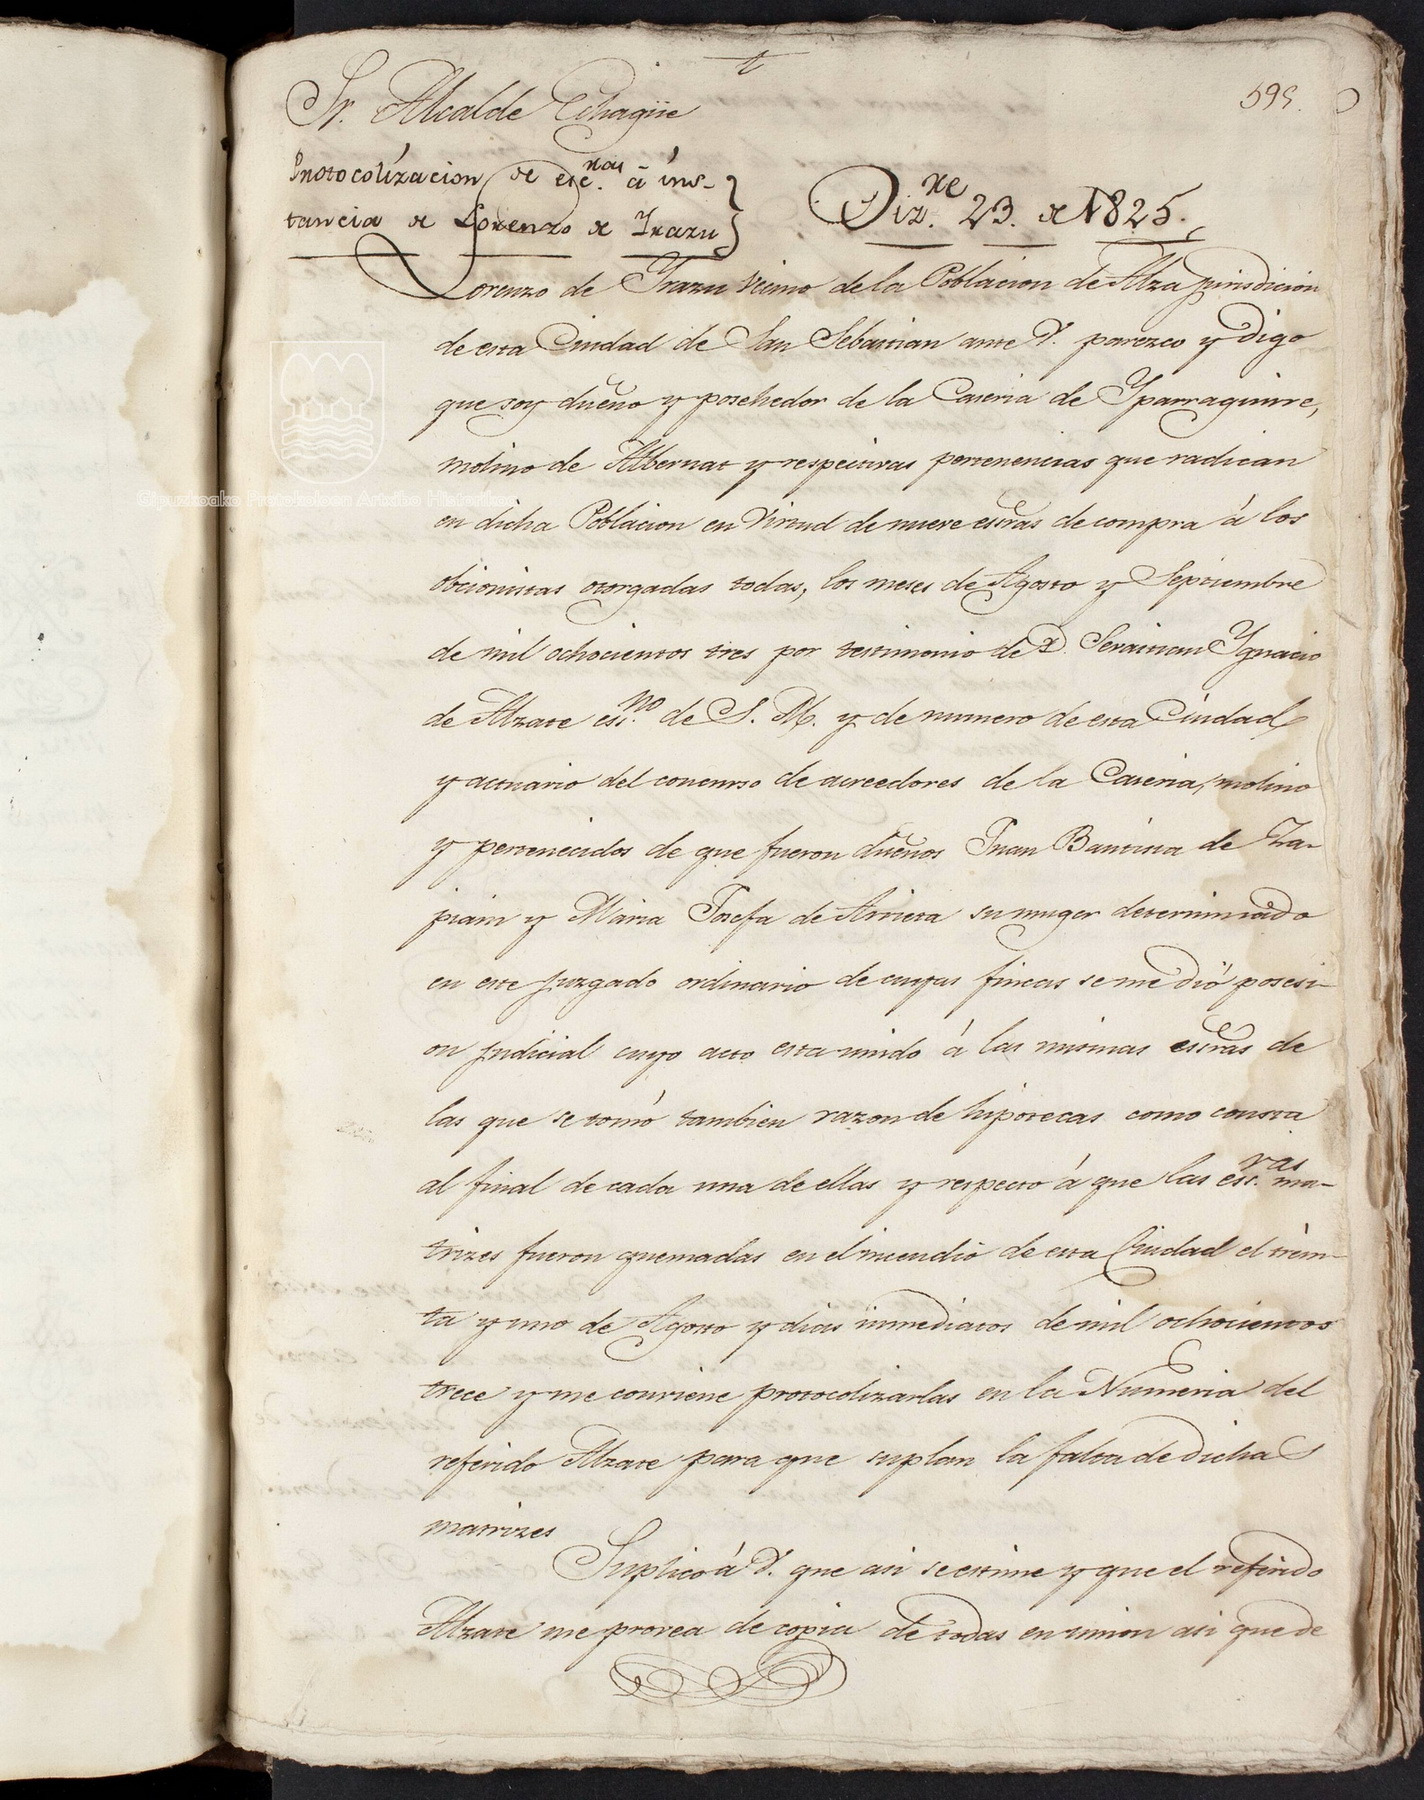 t
595.
Sr. Alcalde Echagüe
Protocolizacion de escras. á ins-
tancia de Lorenzo de Irazu
Dizre. 23. de 1825.
Lorenzo de Yrazu vecino de la Poblacion de Alza jurisdicion
de esta Ciudad de San Sebastian ante V. parezco y digo
que soy dueño y posehedor de la Caseria de Yparraguirre,
molino de Albernat y respectivas pertenencias que radican
en dicha Poblacion en virtud de nueve escras de compra á los
obcionistas otorgadas todas, los meses de Agosto y Septiembre
de mil ochocientos tres por testimonio de D. Sebastian Ygnacio
de Alzate esno. de S. M. y de numero de esta Ciudad
y actuario del concurso de acreedores de la Caseria, molino
y pertenecidos de que fueron dueños Juan Bautista de Za-
piain y Maria Josefa de Arrieta su muger determinado
en este juzgado ordinario de cuyas fincas se me dió posesi-
on judicial cuyo acto esta unido á las mismas escras de
las que se tomó tambien razon de hipotecas como consta
al final de cada una de ellas y respecto á que las escras. ma-
trizes fueron quemadas en el incendio de esta Ciudad el trein-
ta y uno de Agosto y dias inmediatos de mil ochocientos
trece y me conviene protocolizarlas en la Numeria del
referido Alzate para que suplan la falta de dichas
matrizes
Suplico á V. que asi se estime y que el referido
Alzate me provea de copia de todas en union asi que de
Gipuzkoako Protokoloen Artxibo Historikoa